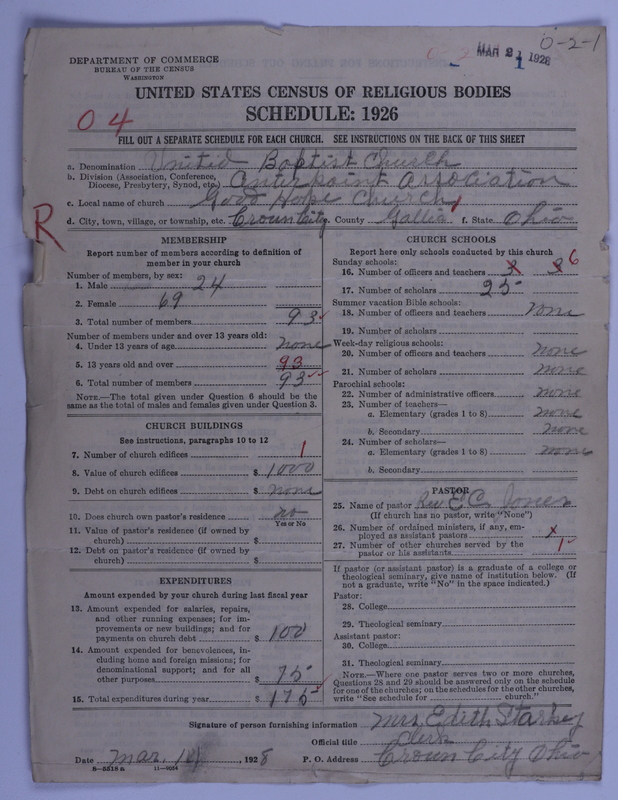 0-2-1
MAR 21 1928
1
DEPARTMENT OF COMMERCE
BUREAU OF THE CENSUS
WASHINGTON
UNITED STATES CENSUS OF RELIGIOUS BODIES
SCHEDULE: 1926
04
FILL OUT A SEPARATE SCHEDULE FOR EACH CHURCH. SEE INSTRUCTIONS ON THE BACK OF THIS SHEET
a. Denomination United Baptist Church
b. Division (Association, Conference, Diocese, Presbytery, Synod, etc.) Centerpoint Association
c. Local name of church Good Hope Church
d. City, town, village, or township, etc. Crown City e. County Gallia f. State Ohio
R
MEMBERSHIP
Report number of members according to definition of
member in your church
Number of members, by sex:
1. Male 24
2. Female 69
3. Total number of members 93
Number of members under and over 13 years old:
4. Under 13 years of age none
5. 13 years old and over 93
6. Total number of members 93
NOTE.—The total given under Question 6 should be the
same as the total of males and females given under Question 3.
CHURCH BUILDINGS
See instructions, paragraphs 10 to 12
7. Number of church edifices 1
8. Value of church edifices $ 1000
9. Debt on church edifices $ none
10. Does church own pastor's residence no
Yes or No
11. Value of pastor's residence (if owned by
church) $
12. Debt on pastor's residence (if owned by
church) $
EXPENDITURES
Amount expended by your church during last fiscal year
13. Amount expended for salaries, repairs,
and other running expenses; for im-
provements or new buildings; and for
payments on church debt $ 100
14. Amount expended for benevolences, in-
cluding home and foreign missions; for
denominational support; and for all
other purposes $ 75
15. Total expenditures during year $ 175
CHURCH SCHOOLS
Report here only schools conducted by this church
Sunday schools:
16. Number of officers and teachers 3 3 6
17. Number of scholars 25
Summer vacation Bible schools:
18. Number of officers and teachers none
19. Number of scholars
Week-day religious schools:
20. Number of officers and teachers none
21. Number of scholars none
Parochial schools:
22. Number of administrative officers none
23. Number of teachers—
a. Elementary (grades 1 to 8) none
b. Secondary none
24. Number of scholars—
a. Elementary (grades 1 to 8) none
b. Secondary
PASTOR
25. Name of pastor Rev E C Jones
(If church has no pastor, write "None")
26. Number of ordained ministers, if any, em-
ployed as assistant pastors x
27. Number of other churches served by the
pastor or his assistants 1
If pastor (or assistant pastor) is a graduate of a college or
theological seminary, give name of institution below. (If
not a graduate, write "No" in the space indicated.)
Pastor:
28. College
29. Theological seminary
Assistant pastor:
30. College
31. Theological seminary
NOTE.—Where one pastor serves two or more churches,
Questions 28 and 29 should be answered only on the schedule
for one of the churches; on the schedules for the other churches,
write "See schedule for church."
Signature of person furnishing information Mrs Edith Starkey
Official title Clerk
Date Mar. 14, 1928 P. O. Address Crown City Ohio
8-5518a 11-9264